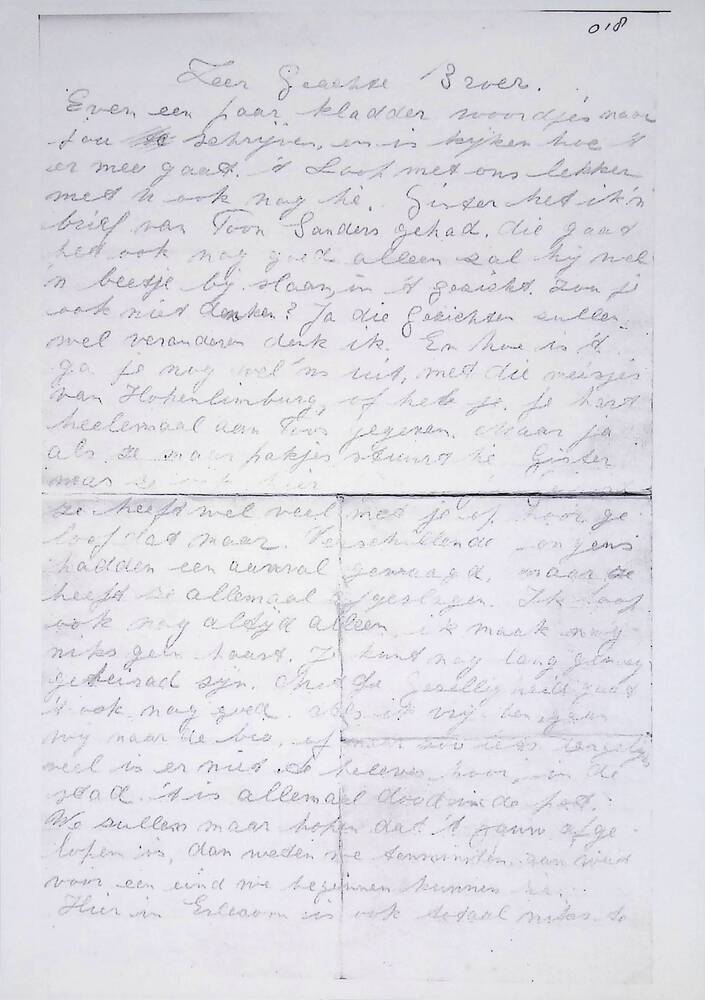 018
Zeer Geachte Broer.
Even een paar kladder woordjes naar
jou te schrijven, en is kijken hoe 't
er mee gaat. 't Loop met ons lekker
met u ook nog hè. Gister heb ik 'n
brief van Toon Sanders gehad. die gaat
het ook nog goed alleen zal hij wel
'n beetje bij slaan, in 't gezicht. zou je
ook niet denken? Ja die gezichten zullen
wel veranderen denk ik. En hoe is 't
ga je nog wel 'ns uit, met die meisjes
van Hohenlimburg, of heb je, je hart
heelemaal aan Toos gegeven. Maar ja
als ze maar pakjes stuurt hè. Gister
was ze ook hier
ze heeft wel veel met je op hoor ge
loof dat maar. Verschillende jongens
hadden een aanval gewaagd, maar ze
heeft ze allemaal afgeslagen. Ik loop
ook nog altijd alleen, ik maak nog
niks geen haast. Je kunt nog lang genoeg
getrouwd zijn. Met de gezelligheid gaat
't ook nog goed. Als ik vrij ben, gaan
wij naar de bio, of naar zoo iets dergelijks
veel is er niet te beleven hoor, in de
stad. 't is allemaal dood in de pot.
We zullen maar hopen dat 't gauw afge
lopen is, dan weten we tenminsten aan wat
voor een eind we beginnen kunnen
Hier in is ook totaal niks te